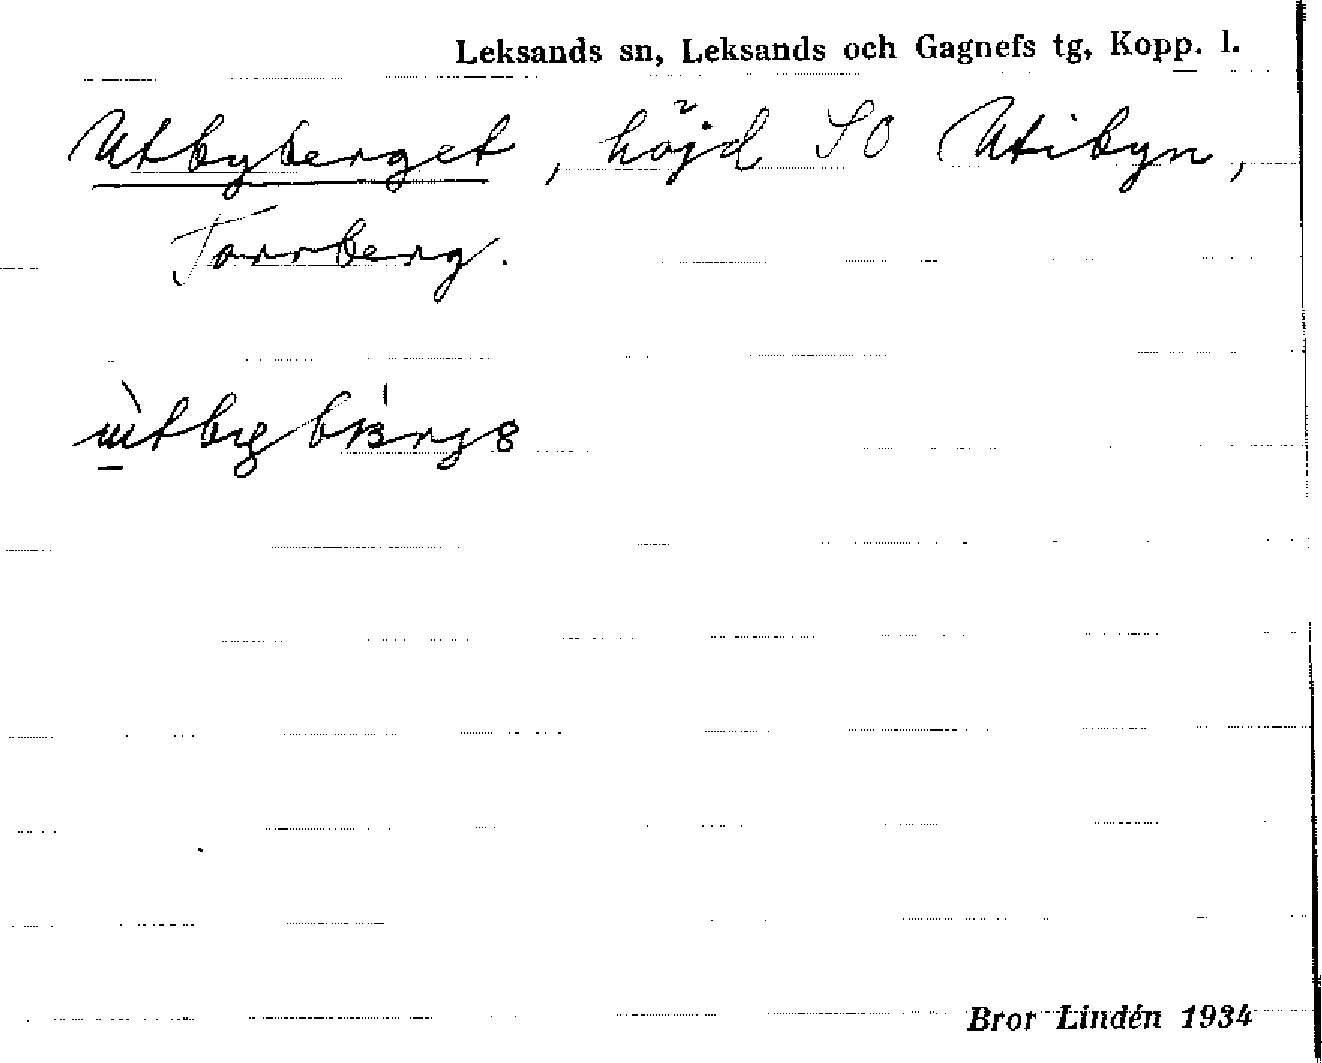 Leksands sn, Leksands och Gagnefs tg, Kopp. l.
Utbyberget, höjd SO Utibyn,
Torrberg.
Bror Lindén 1934